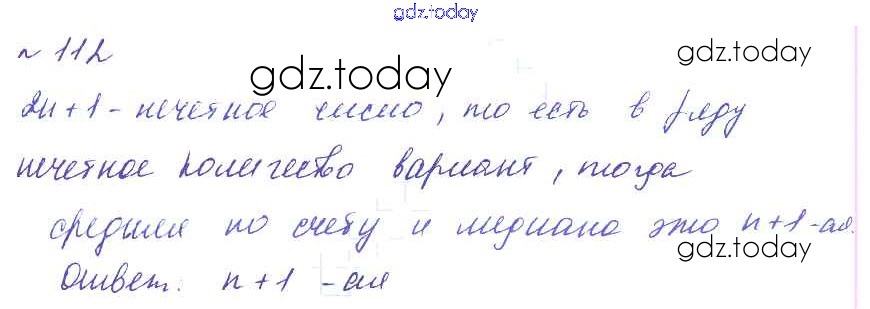 gdz.today
№ 112
gdz.today
gdz.today
2n+1 - нечетное число, то есть в ряду
нечетное количество вариант, тогда
средняя по счету и медиана это n+1-ая.
gdz.today
Ответ: n+1 -ая